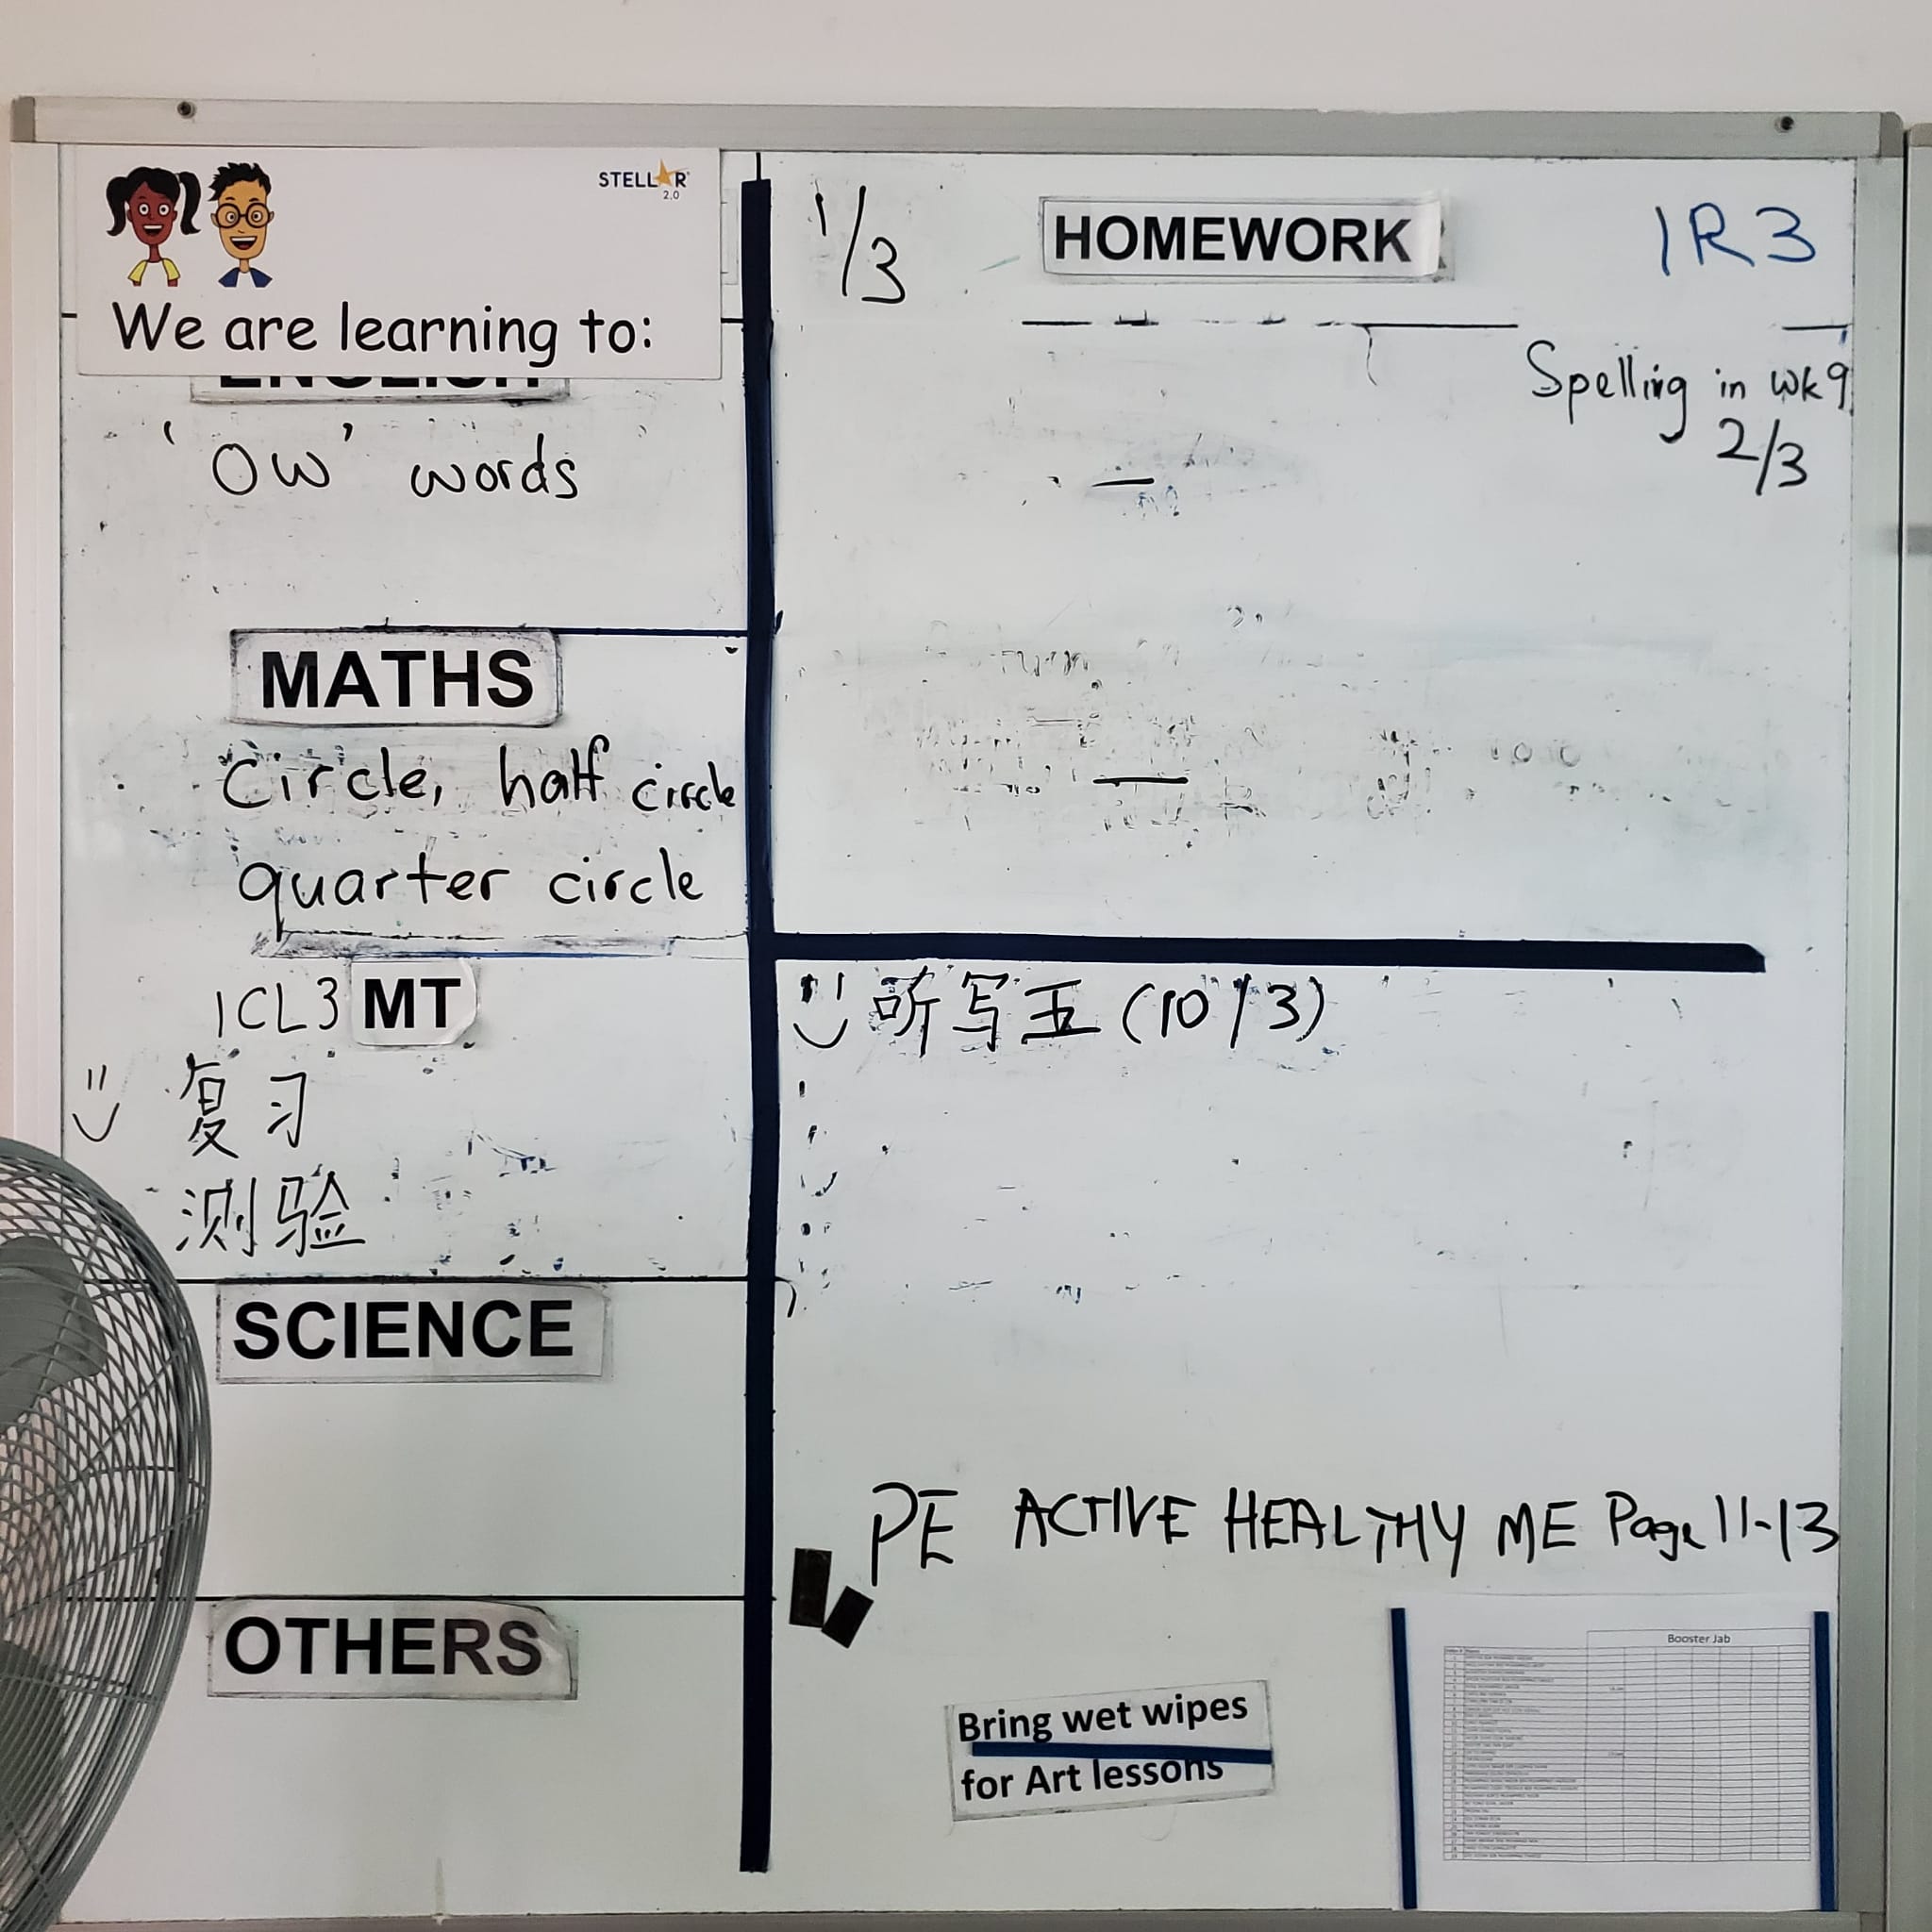 STELLAR
2.0
We are learning to:
ENGLISH
'OW' words
MATHS
Circle, half circle
quarter circle
1CL3 MT
复习
测验
SCIENCE
OTHERS
1/3
HOMEWORK
1R3
Spelling in wk9
2/3
听写五 (10/3)
PE ACTIVE HEALTHY ME Page 11-13
Bring wet wipes
for Art lessons
Booster Jab